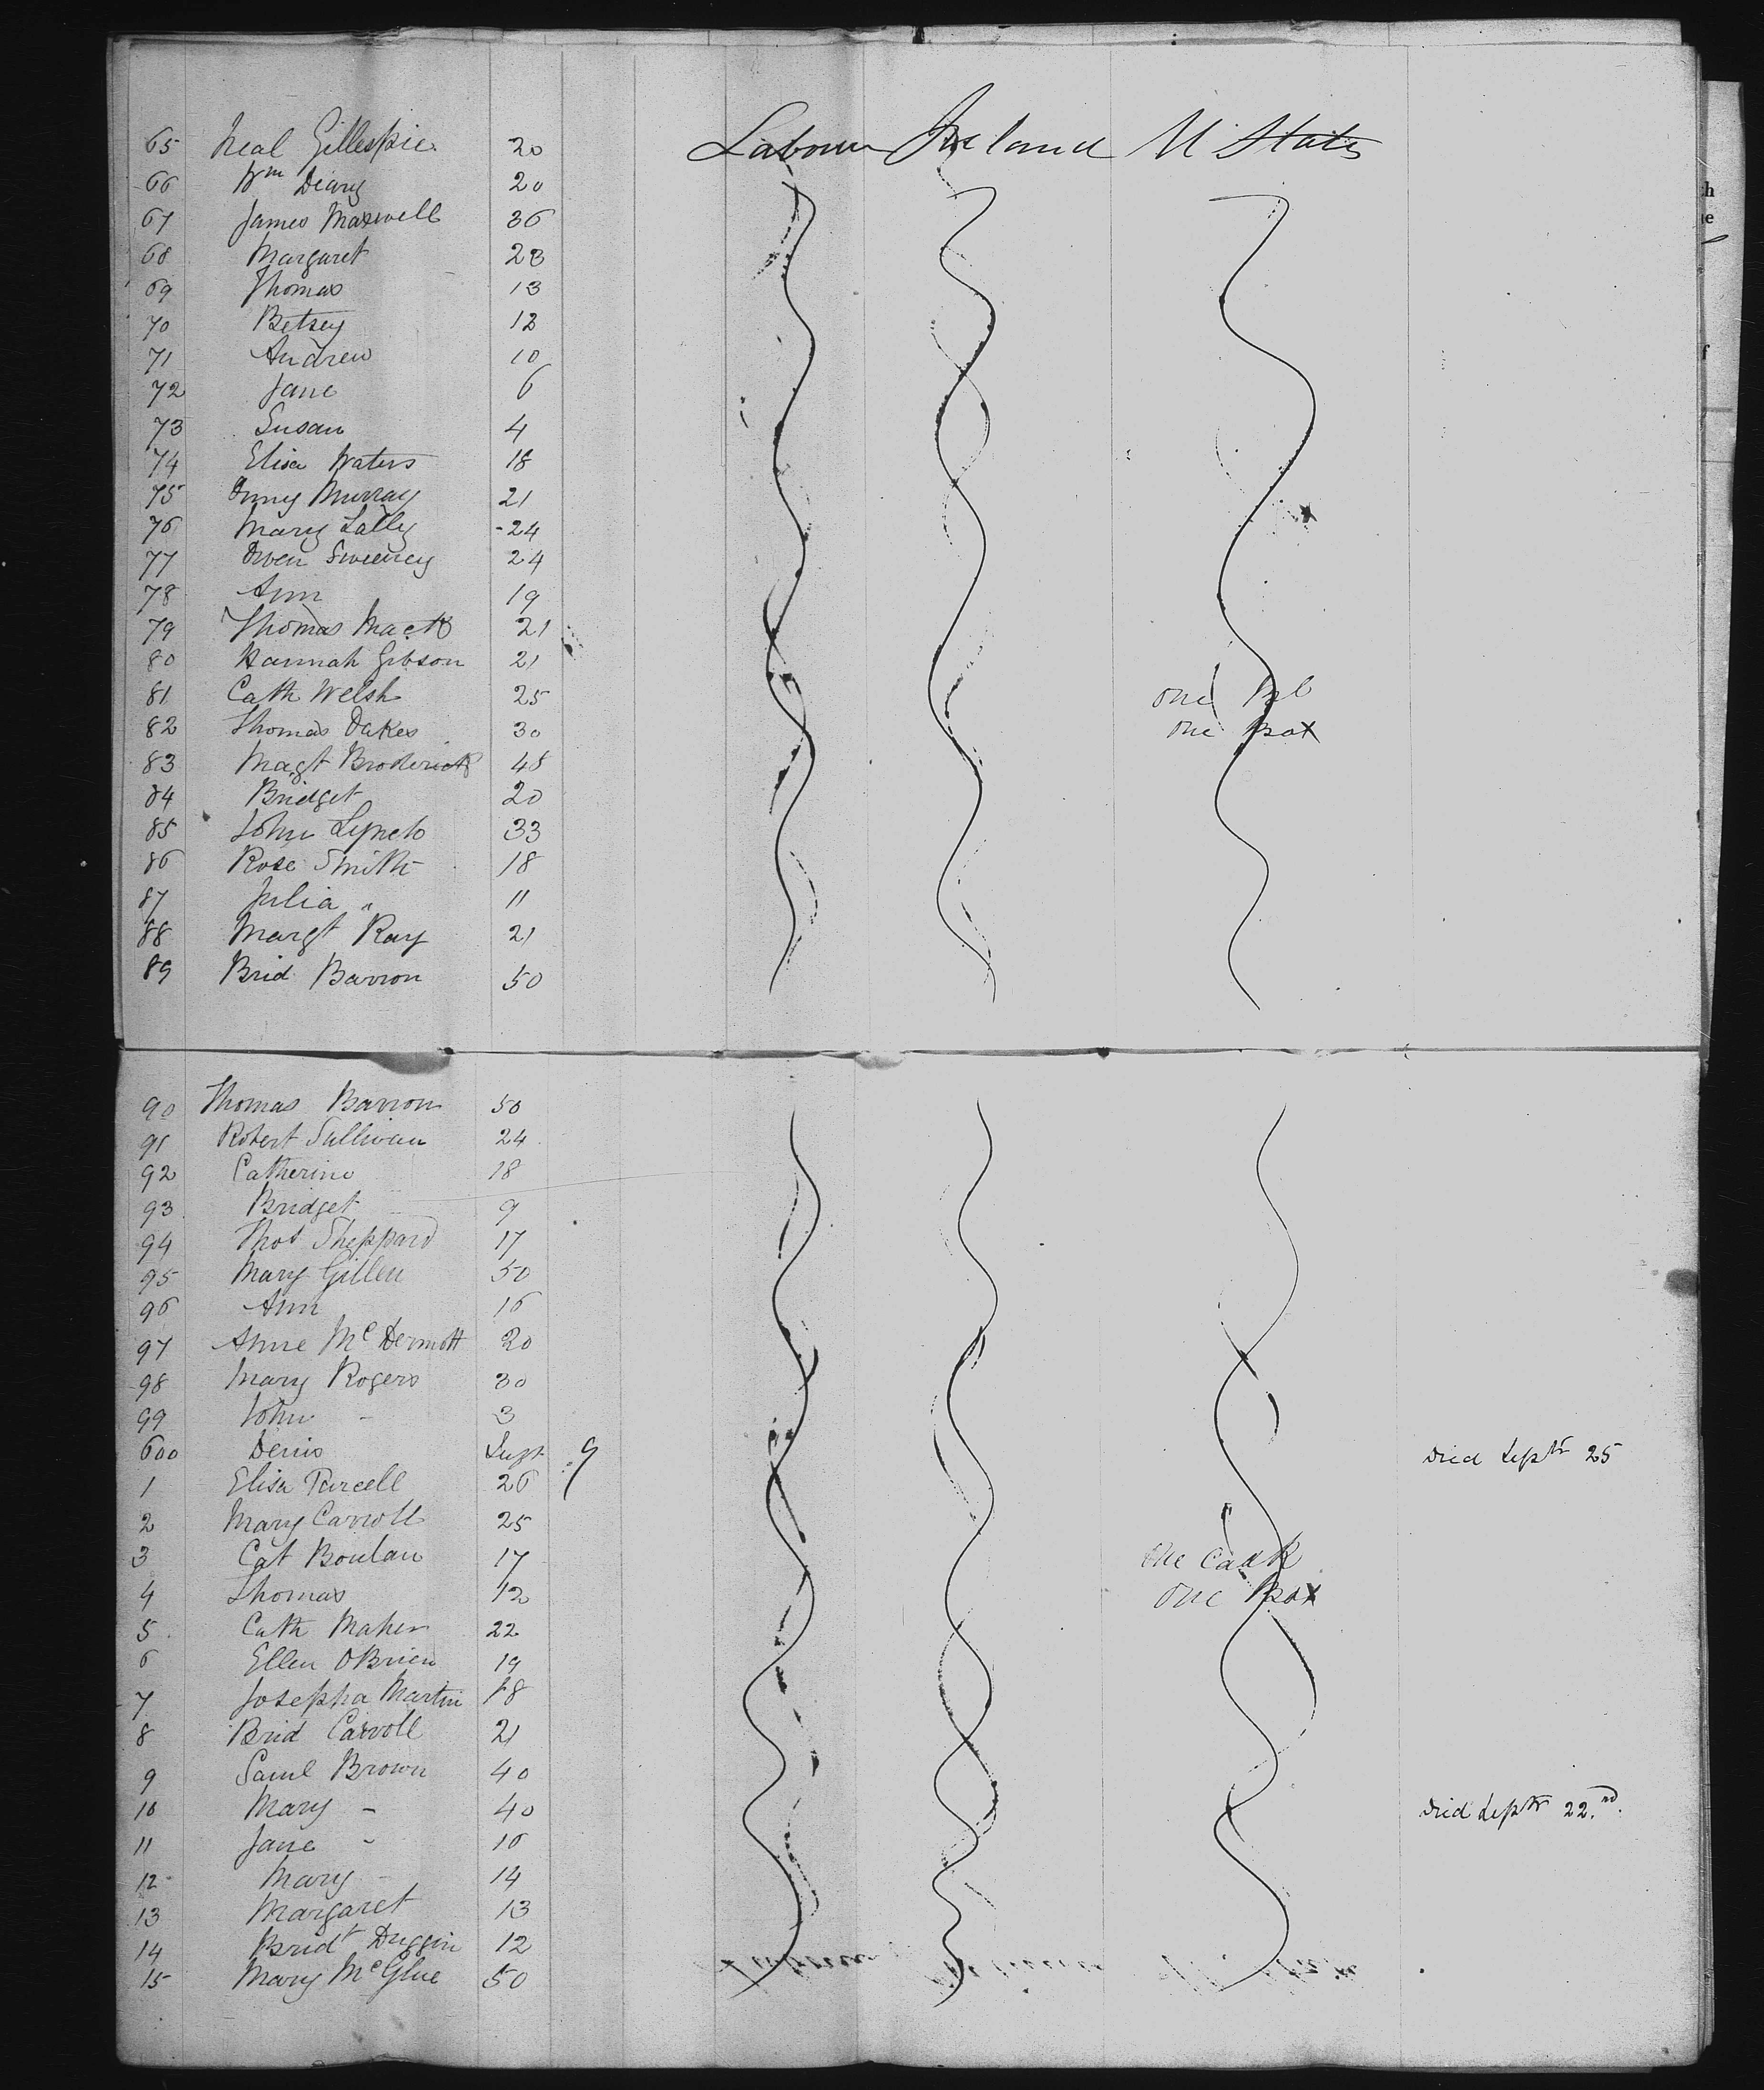 65 Neal Gillespie 20 Labour Ireland U States
66 Wm Deary 20
67 James Maxwell 36
68 Margaret 28
69 Thomas 13
70 Betsey 12
71 Andrew 10
72 Jane 6
73 Susan 4
74 Elisa Waters 18
75 Murray 21
76 Mary Lally 24
77 Owen Sweeney 24
78 Ann 19
79 Thomas Mack 21
80 Hannah Gibson 21
81 Cath Welsh 25 one Bl
82 Thomas Oakes 30 one Box
83 Magt Broderick 48
84 Bridget 20
85 John Lynch 33
86 Rose Smith 18
87 Julia " 11
88 Margt Ray 21
89 Brid Barron 50
90 Thomas Barron 50
91 Robert Sullivan 24
92 Catherine 18
93 Bridget 9
94 Thos Sheppard 17
95 Mary Gillen 50
96 Ann 16
97 Anne McDermott 20
98 Mary Rogers 30
99 John - 3
600 Denis 9 died Septr 25
1 Elisa Purcell 26
2 Mary Carroll 25
3 Cat Boulan 17 one Cask
4 Thomas 12 one Box
5 Cath Maher 22
6 Ellen OBrien 19
7 Josepha Martin 18
8 Brid Carroll 21
9 Saml Brown 40
10 Mary - 40 died Septr 22nd.
11 Jane - 16
12 Mary - 14
13 Margaret 13
14 Bridt Duggin 12
15 Mary McGlue 50